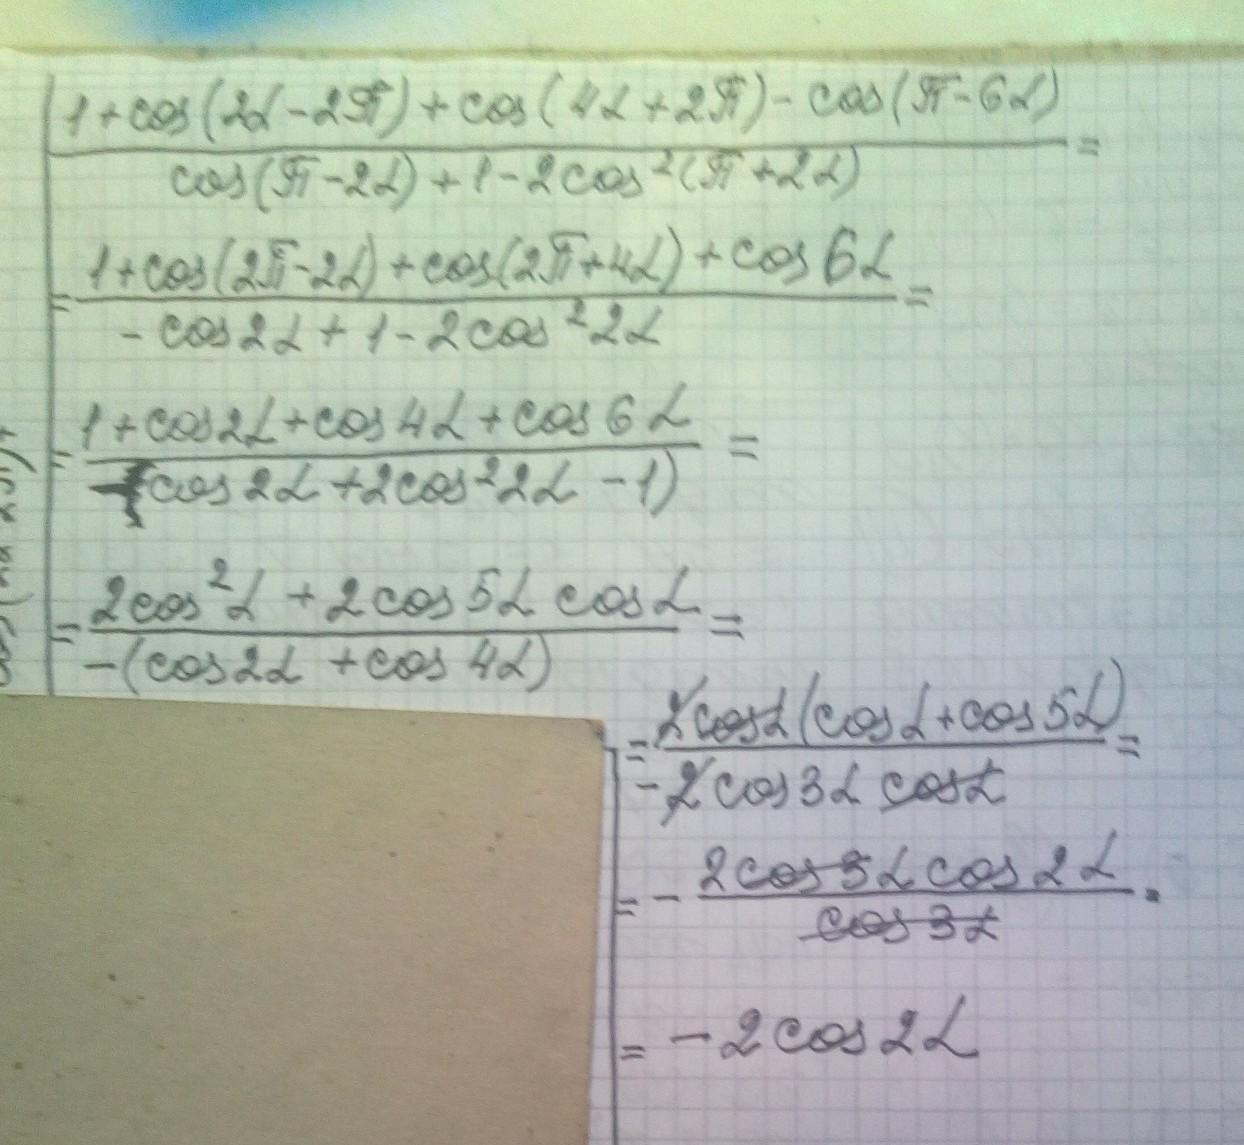 1+cos(2α-2π)+cos(4α+2π)-cos(π-6α) =
cos(π-2α)+1-2cos²(π+2α)
= 1+cos(2π-2α)+cos(2π+4α)+cos6α =
-cos2α+1-2cos²2α
= 1+cos2α+cos4α+cos6α =
-(cos2α+2cos²2α-1)
= 2cos²α+2cos5α cosα =
-(cos2α+cos4α)
= 2cosα(cosα+cos5α) =
-2cos3α cosα
= - 2cos3α cos2α =
cos3α
= -2cos2α